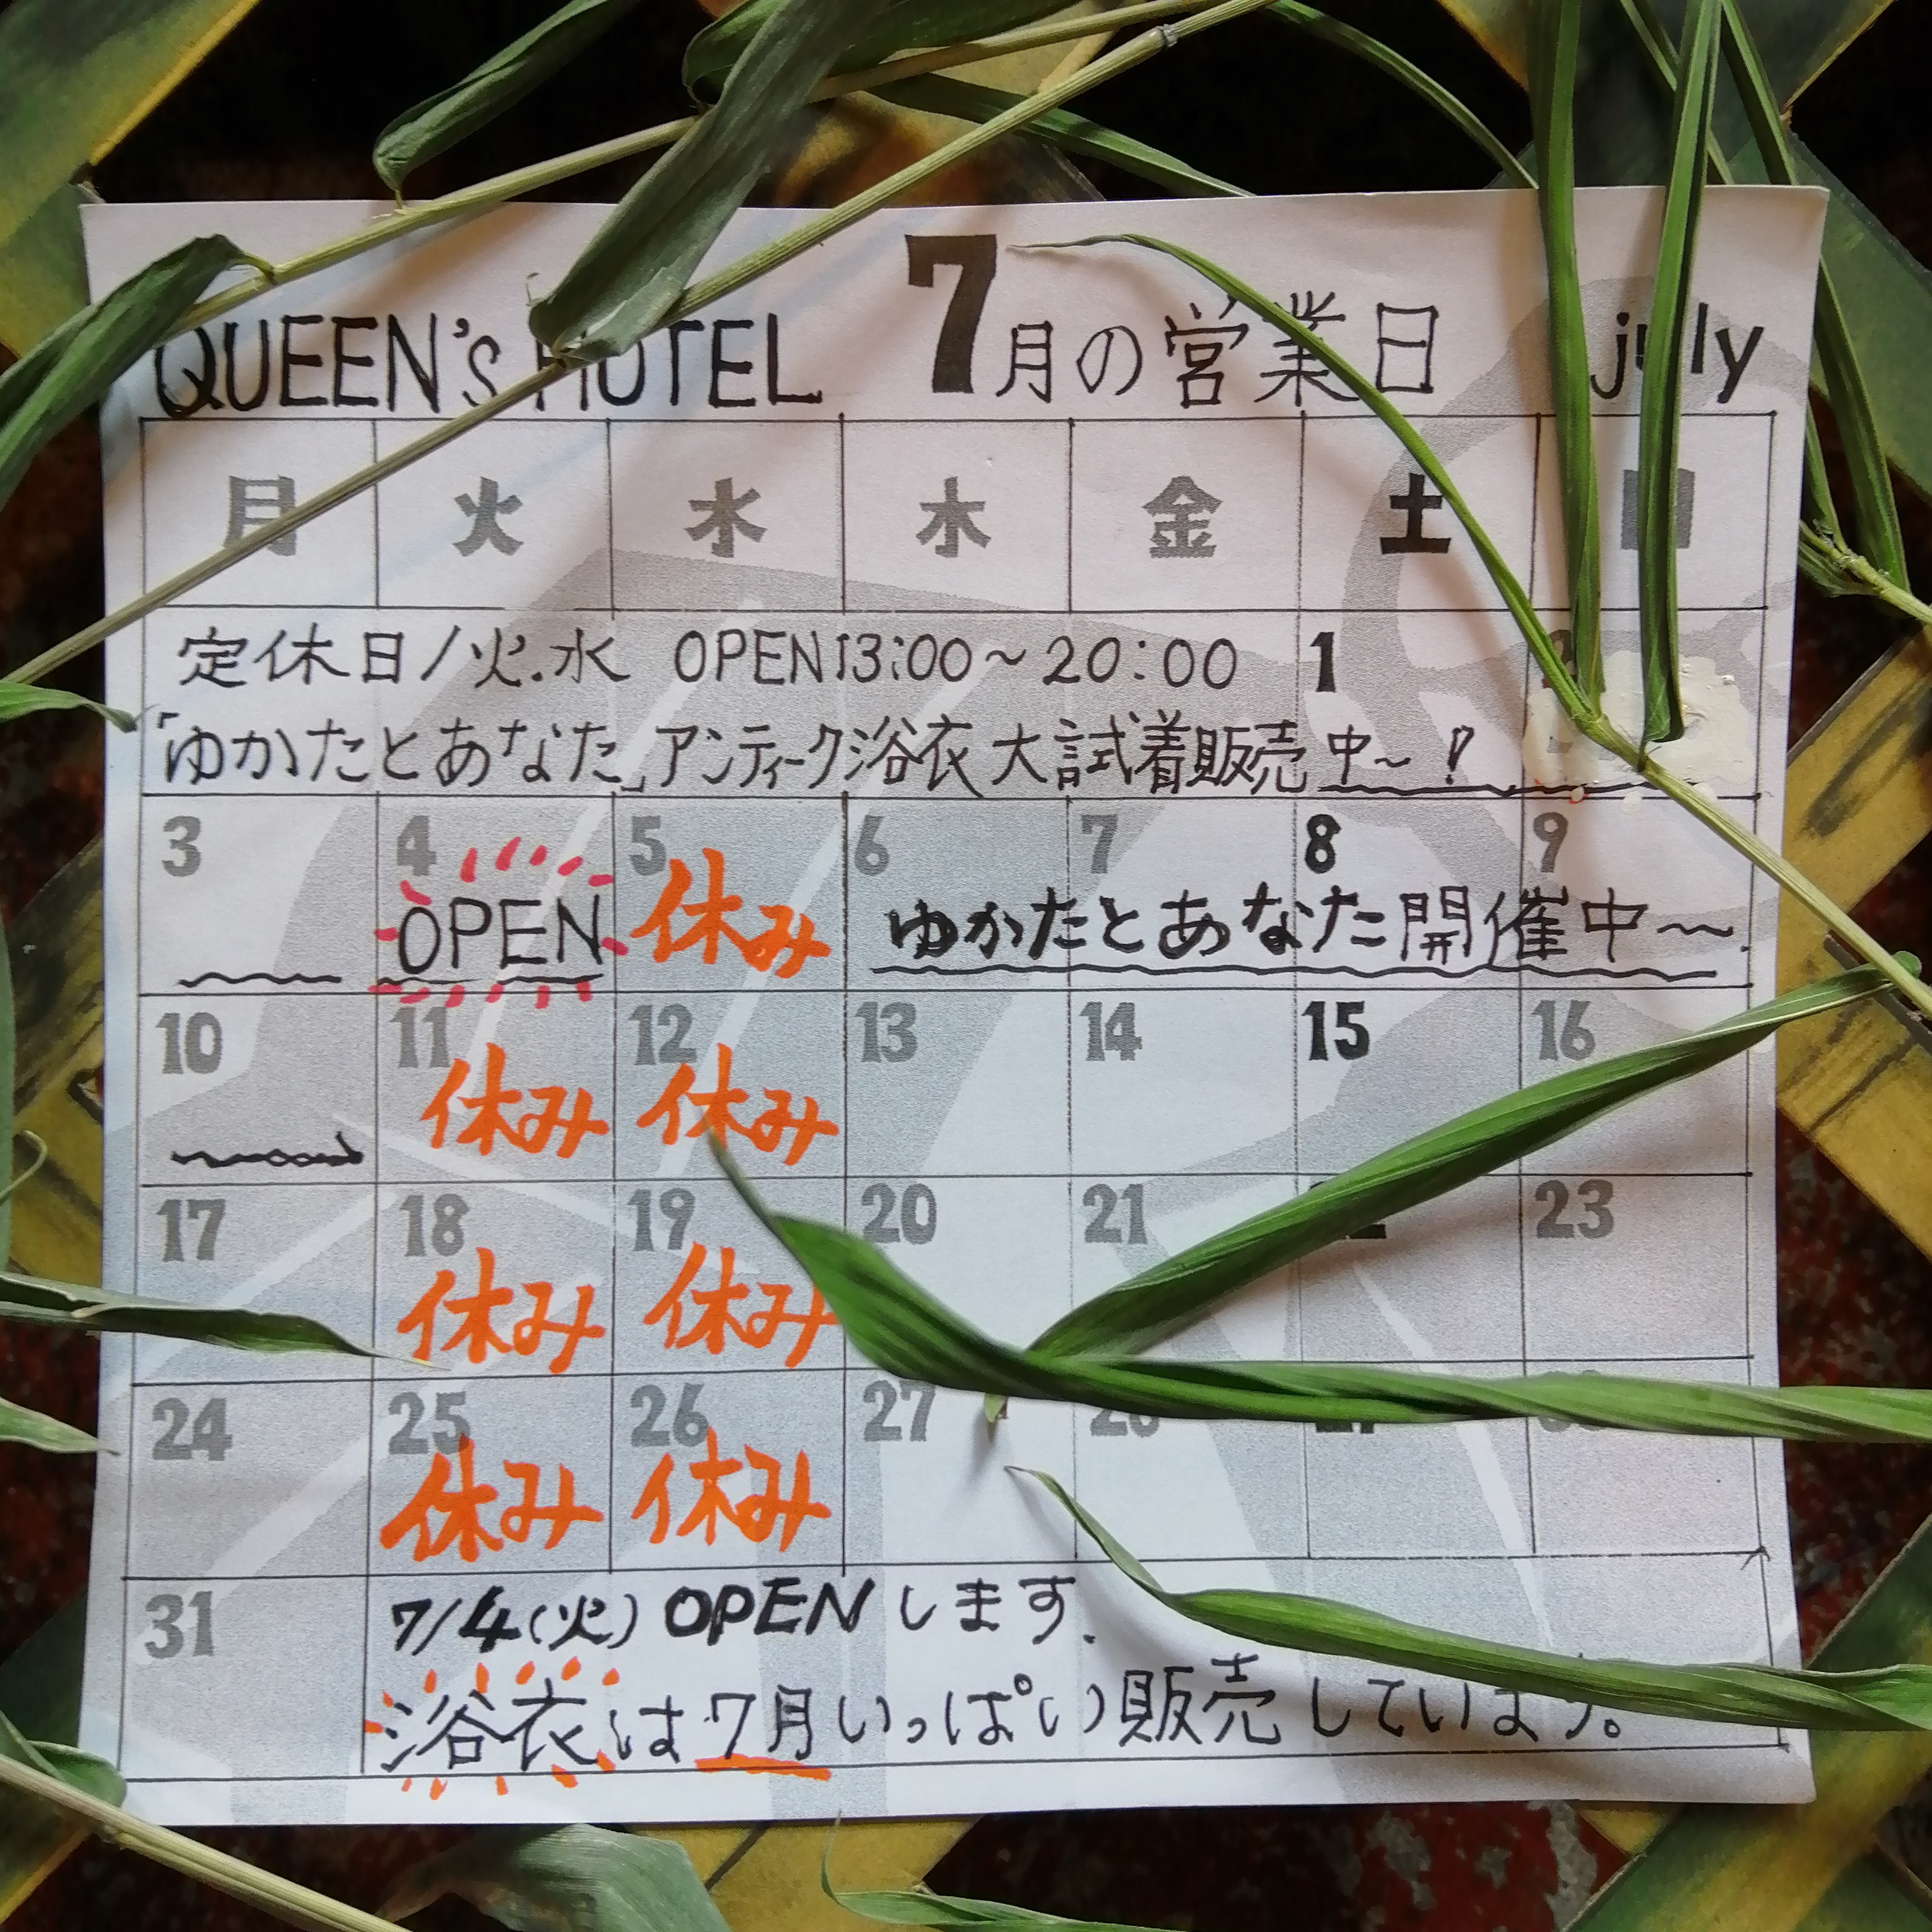 QUEEN's HOTEL 7月の営業日 july
月 火 水 木 金 土 日
定休日/火.水 OPEN13:00~20:00 1
「ゆかたとあなた」アンティーク浴衣大試着販売中~!
3 4 5 6 7 8 9
OPEN 休み ゆかたとあなた開催中~
10 11 12 13 14 15 16
休み 休み
17 18 19 20 21 23
休み 休み
24 25 26 27 28
休み 休み
31 7/4(火)OPENします.
浴衣は7月いっぱい販売しています。